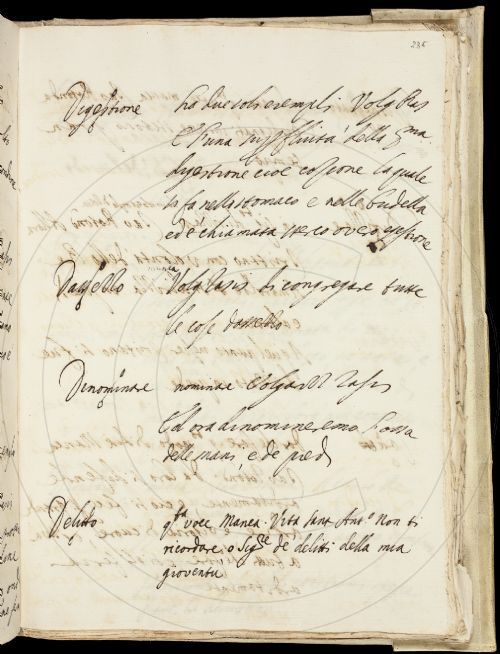 236
Digestione ha due soli esempli Volg Ras
E l'una superfluità della
digestione cioè cozione la quale
si fa nello stomaco e nelle budella
ed è chiamata stereo overo egestione
Dassello Volg Rasis di congregare tutte
le cose dassello
Dinominare nominare Volgar Rasis
Ed ora dinomineremo l'ossa
delle mani e de piedi
Delitto qta voce Manca. Vita Sant Ant.o Non ti
ricordare o Sigre de delitti della mia
gioventu